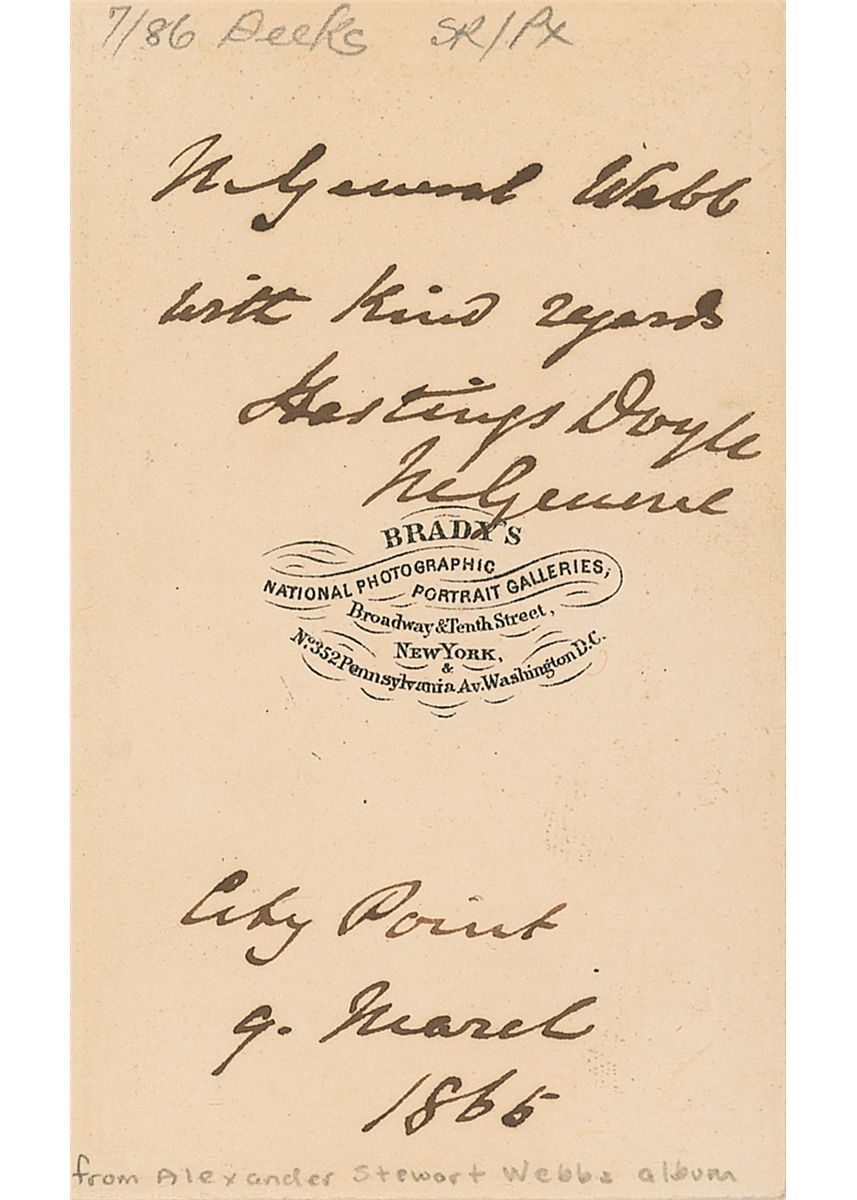 7/86 Deeks SR/PX
M. General Webb
with kind regards
Hastings Doyle
M. General
BRADY'S
NATIONAL PHOTOGRAPHIC
PORTRAIT GALLERIES,
Broadway & Tenth Street,
NEW YORK,
&
No. 352 Pennsylvania Av. Washington D.C.
City Point
9. March
1865
from Alexander Stewart Webbs album